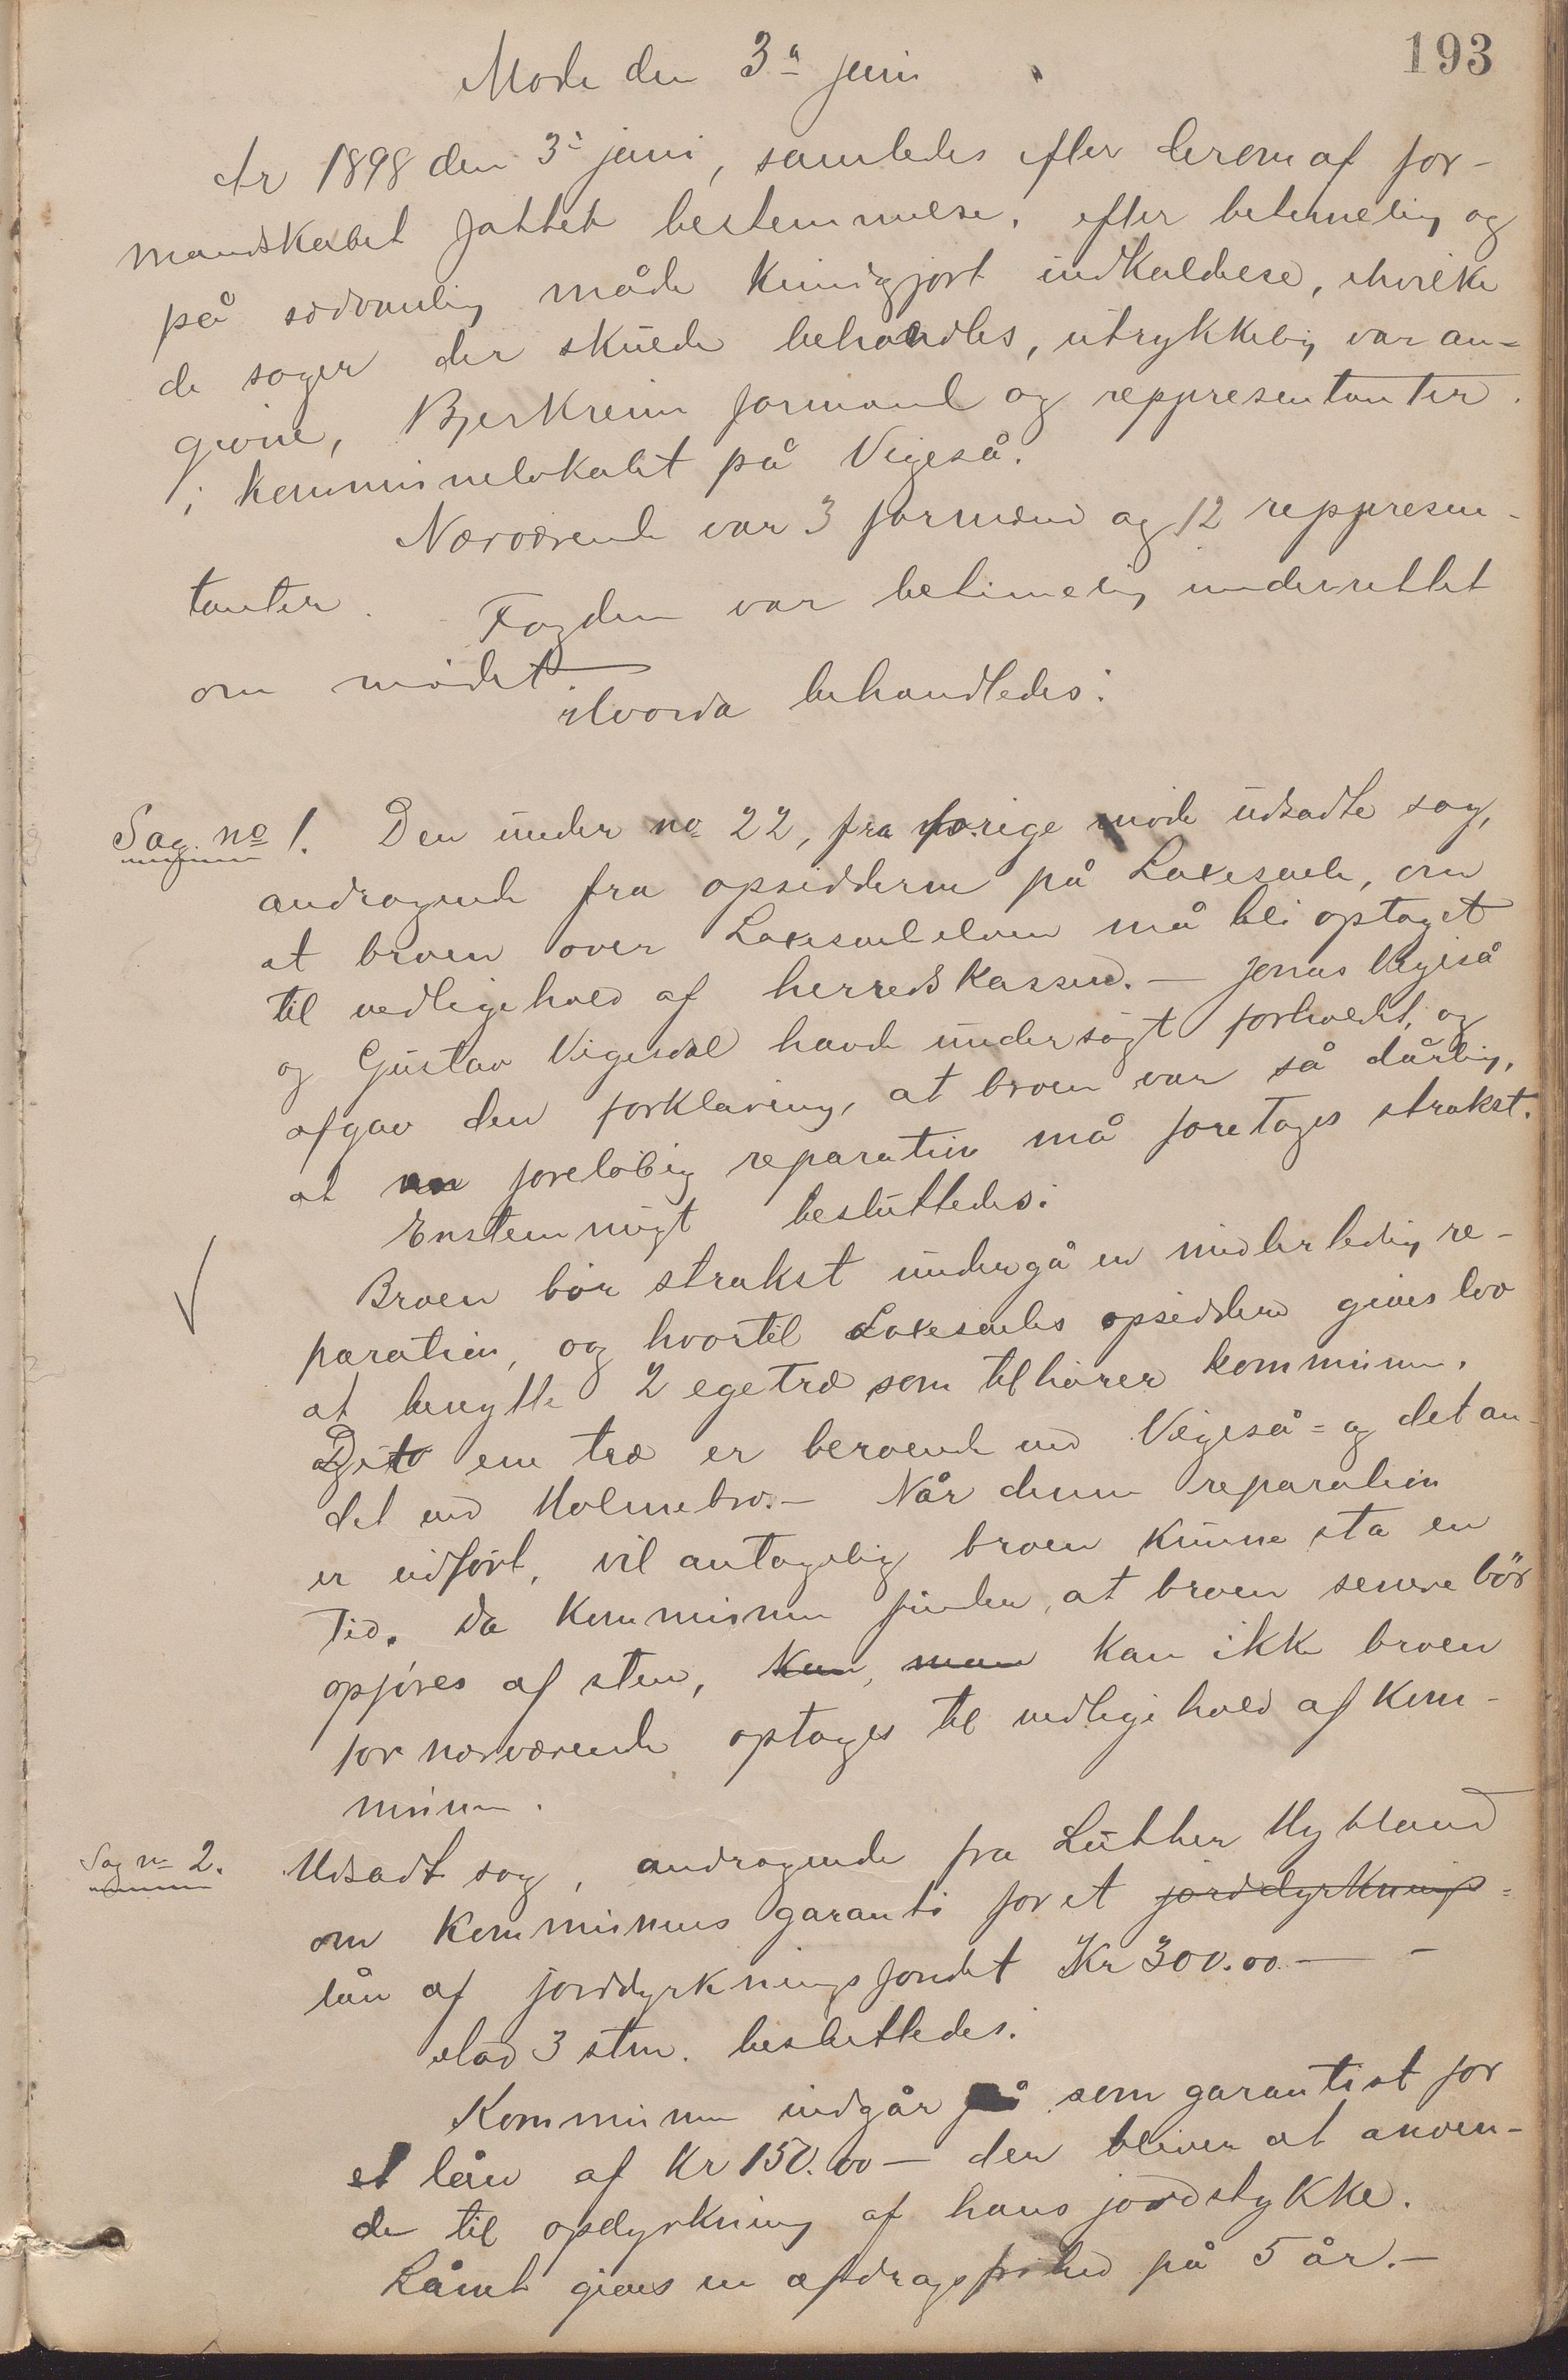 193
Møde den 3die juni
År 1898 den 3die juni, samledes efter derom af for-
mandskabet fattet bestemmelse, efter betimelig og
på sædvanlig måde kundgjort indkaldelse, i hvilke
de sager der skulde behandles, utrykkelig var an-
givne, Bjerkreim formænd og reppresentanter
i kommunelokalet på Vigeså.
Nærværende var 3 formænd og 12 reppresen-
tanter. Fogden var betimelig underrettet
om mødet
Hvorda behandledes:
Sag no 1. Den under no 22, fra forige møde udsadte sag,
andragende fra opsidderne på Laxesvele, om
at broen over Laxesvelelven må bli optaget
til vedligehold af herredskassen. — Jonas Vigeså
og Gustav Vigesdal havde undersøgt forholdet, og
afgav den forklaring, at broen var så dårlig,
at en foreløbig reparation må foretages strakst.
Enstemmigt besluttedes:
Broen bør strakst undergå en midlertedig re-
paration, og hvortil Laxesveles opsiddere gives lov
at benytte 2 egetræ som tilhører kommunen.
Det ene træ er beroende ved Vigeså = og det an-
det ved Holmebro. — Når denne reparation
er udført, vil antagelig broen kunne sta en
Tid. Da kommunen finder, at broen senere bør
opføres af sten, kan, man kan ikke broen
for nærværende optages til vedligehold af kom-
munen.
Sag no 2. Udsadt sag, andragende fra Luther Hytland
om kommunens garanti for et jorddyrknings=
lån af jorddyrkningsfondet Kr 300.00 — –
Mod 3 stm. besluttedes:
Kommunen indgår på som garantist for
et lån af Kr 150.00 — den bliver at anven-
de til opdyrkning af hans jordstykke.
Lånet gives en afdragsfrihed på 5 år. —